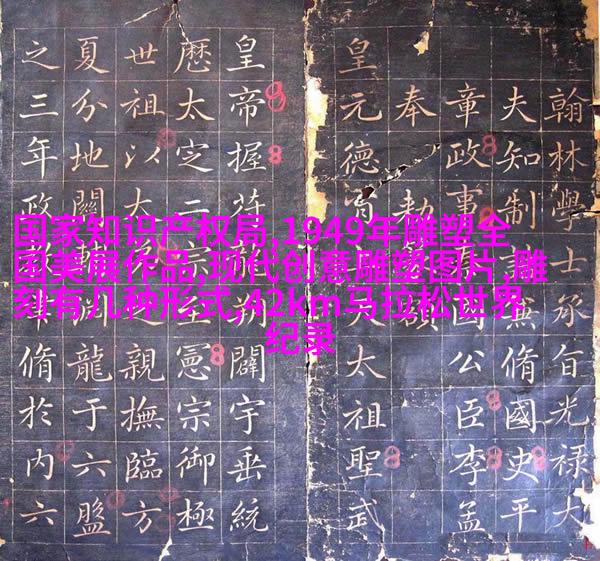 国家知识产权局,1949年雕塑全
国美展作品,现代创意雕塑图片,雕
刻有几种形式,42km马拉松世界
纪录
翰林學士承旨光祿大
夫知制脩國史平
章政事公臣李孟
奉勅
皇元德太祖聖武
皇帝握符闢宇垂統
歷太定二憲宗御極
世祖以大親撫臨方
夏分地關龍于六盤
之三年政脩於內六